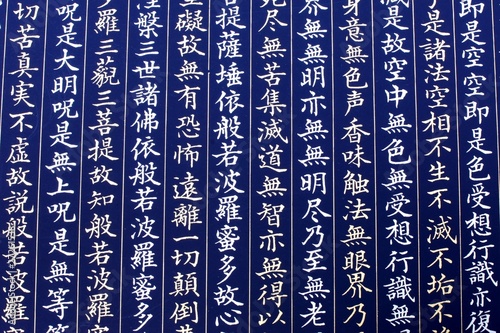 即是空空即是色受想行識亦復
子是諸法空相不生不滅不垢不
減是故空中無色無受想行識無
身意無色声香味触法無眼界乃
界無無明亦無無明尽乃至無老
死尽無苦集滅道無智亦無得以
菩提薩埵依般若波羅蜜多故心
罣礙故無有恐怖遠離一切顛倒
涅槃三世諸佛依般若波羅蜜多
多羅三藐三菩提故知般若波羅
呪是大明呪是無上呪是無等
切苦真実不虚故説般若波羅